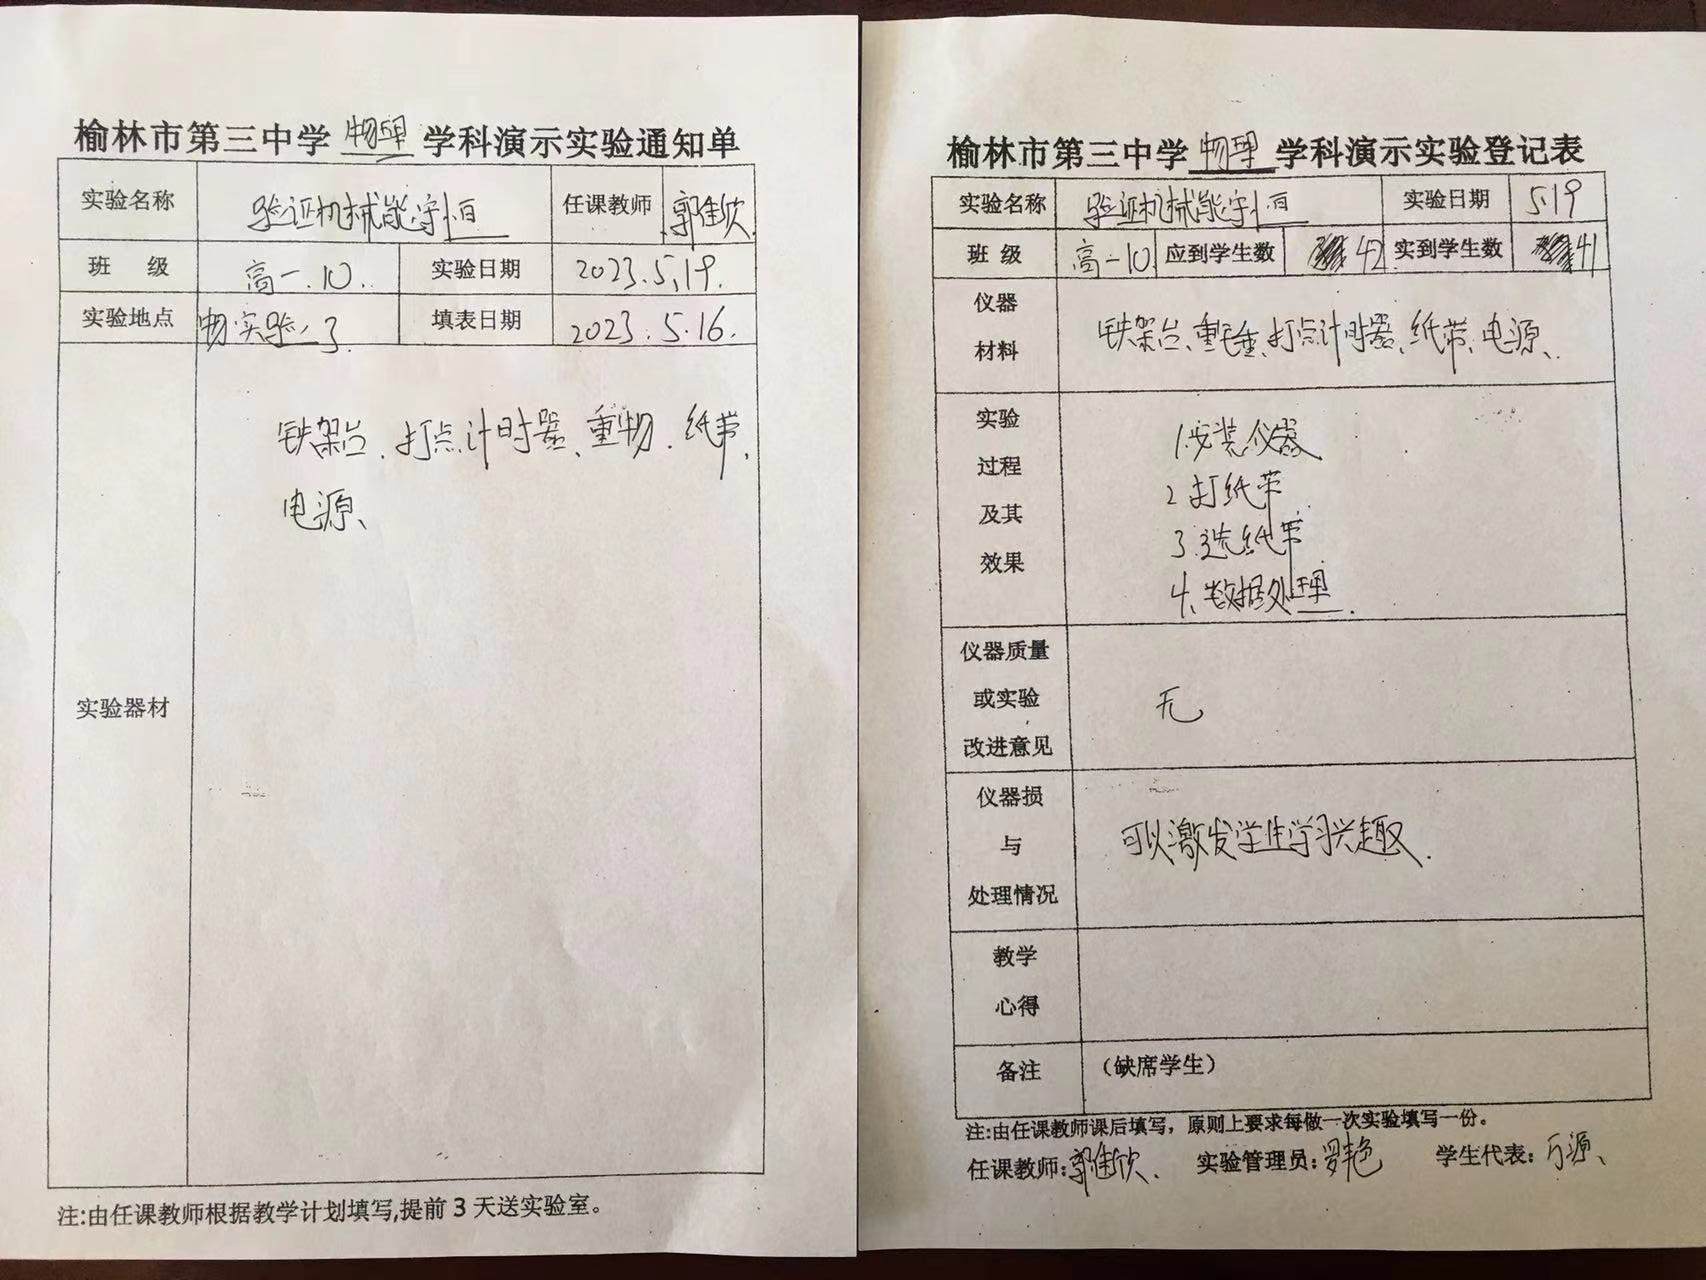 榆林市第三中学 物理 学科演示实验通知单
实验名称 验证机械能守恒 任课教师 郭佳欣
班 级 高一.10. 实验日期 2023.5.19.
实验地点 物实验室3 填表日期 2023.5.16.
实验器材
铁架台、打点计时器、重物、纸带、
电源、
注:由任课教师根据教学计划填写,提前3天送实验室。
榆林市第三中学 物理 学科演示实验登记表
实验名称 验证机械能守恒 实验日期 5.19
班 级 高一10 应到学生数 42 实到学生数 41
仪器
材料
铁架台、重锤、打点计时器、纸带、电源、
实验
过程
及其
效果
1.安装仪器
2 打纸带
3.选纸带
4、数据处理.
仪器质量
或实验
改进意见
无
仪器损
与
处理情况
可以激发学生学习兴趣.
教学
心得
备注 (缺席学生)
注:由任课教师课后填写，原则上要求每做一次实验填写一份。
任课教师:郭佳欣、 实验管理员:罗艳 学生代表:万源、